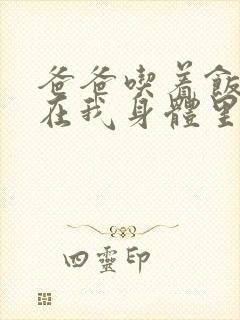 爸爸喫着飯
在我身體里
四靈印